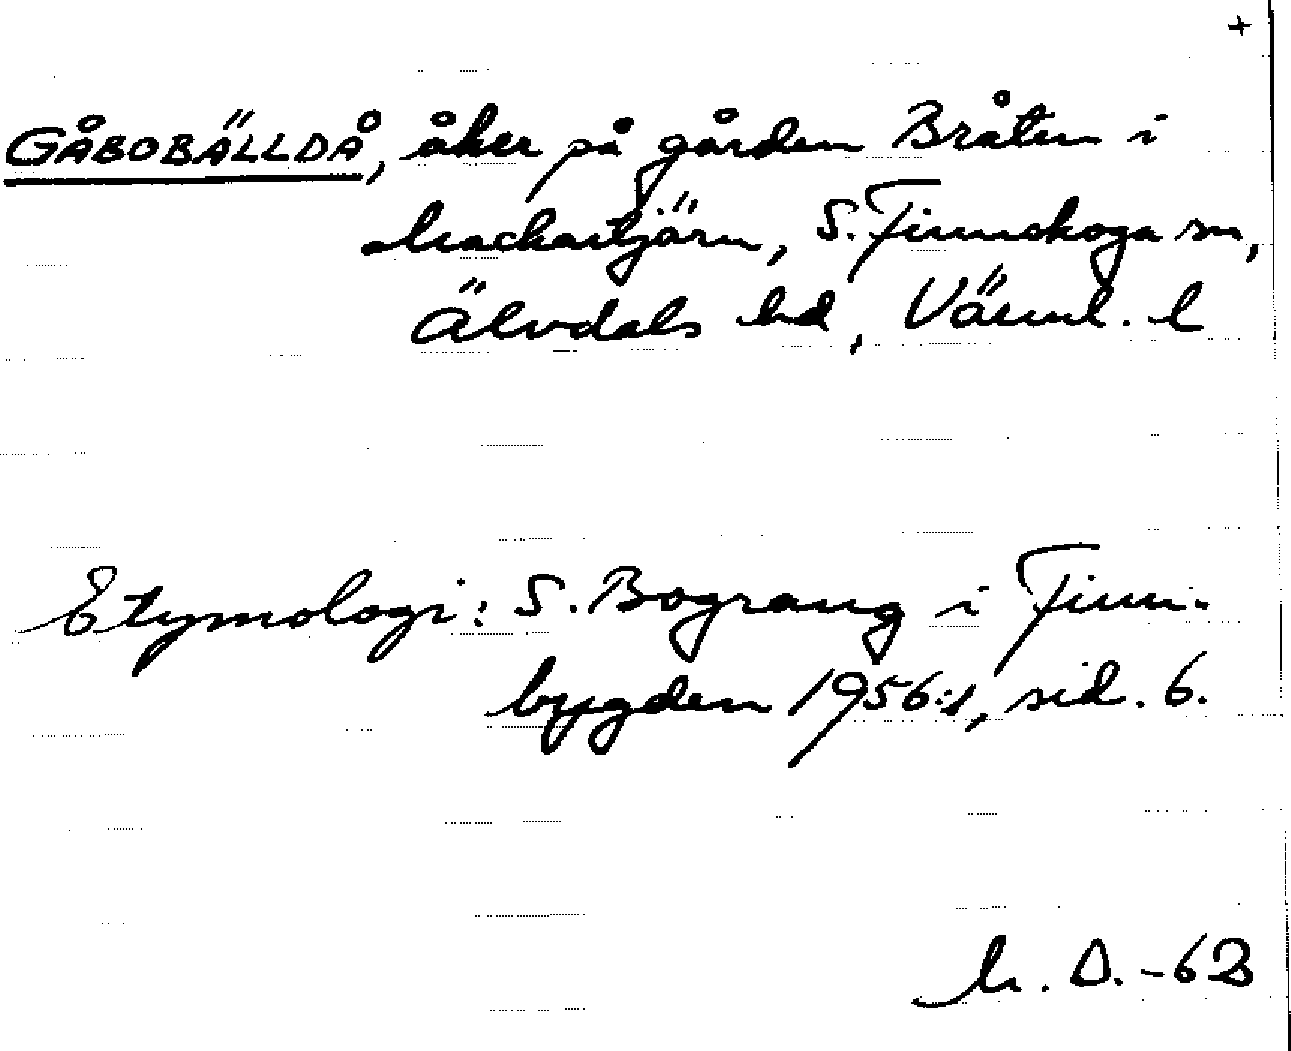 +
GÅBOBÄLLDÅ, åker på gården Bråten i
Mackartjärn, S. Finnskoga sn,
Älvdals hd, Värml. l
Etymologi: S. Bograng i Finn-
bygden 1956:1, sid. 6.
D.